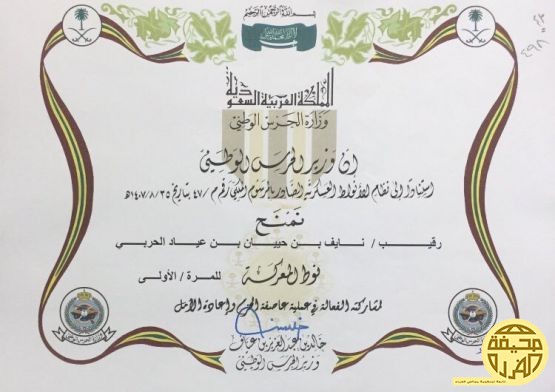 بسم الله الرحمن الرحيم
المملكة العربية السعودية
وزارة الحرس الوطني
إن وزير الحرس الوطني
استناداً إلى نظام الأنواط العسكرية الصادر بالمرسوم الملكي رقم م/٤٧ بتاريخ ١٤٠٧/٨/٢٥هـ
نمنح
رقيب / نايف بن حبيبان بن عياد الحربي
نوط المعركة للمرة / الأولى
لمشاركته الفعالة في عملية عاصفة الحزم وإعادة الأمل
خالد بن عبدالعزيز بن عياف
وزير الحرس الوطني
صحيفة